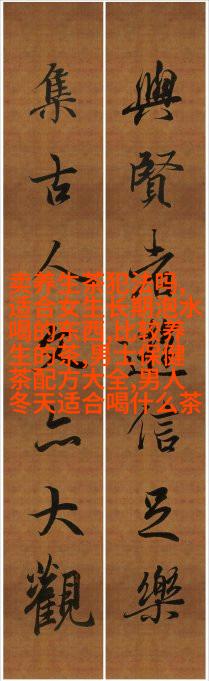 與賢者信足樂
集古人亦大觀
卖养生茶犯法吗,
适合女生长期泡水
喝的东西,比较养
生的茶,男士保健
茶配方大全,男人
冬天适合喝什么茶